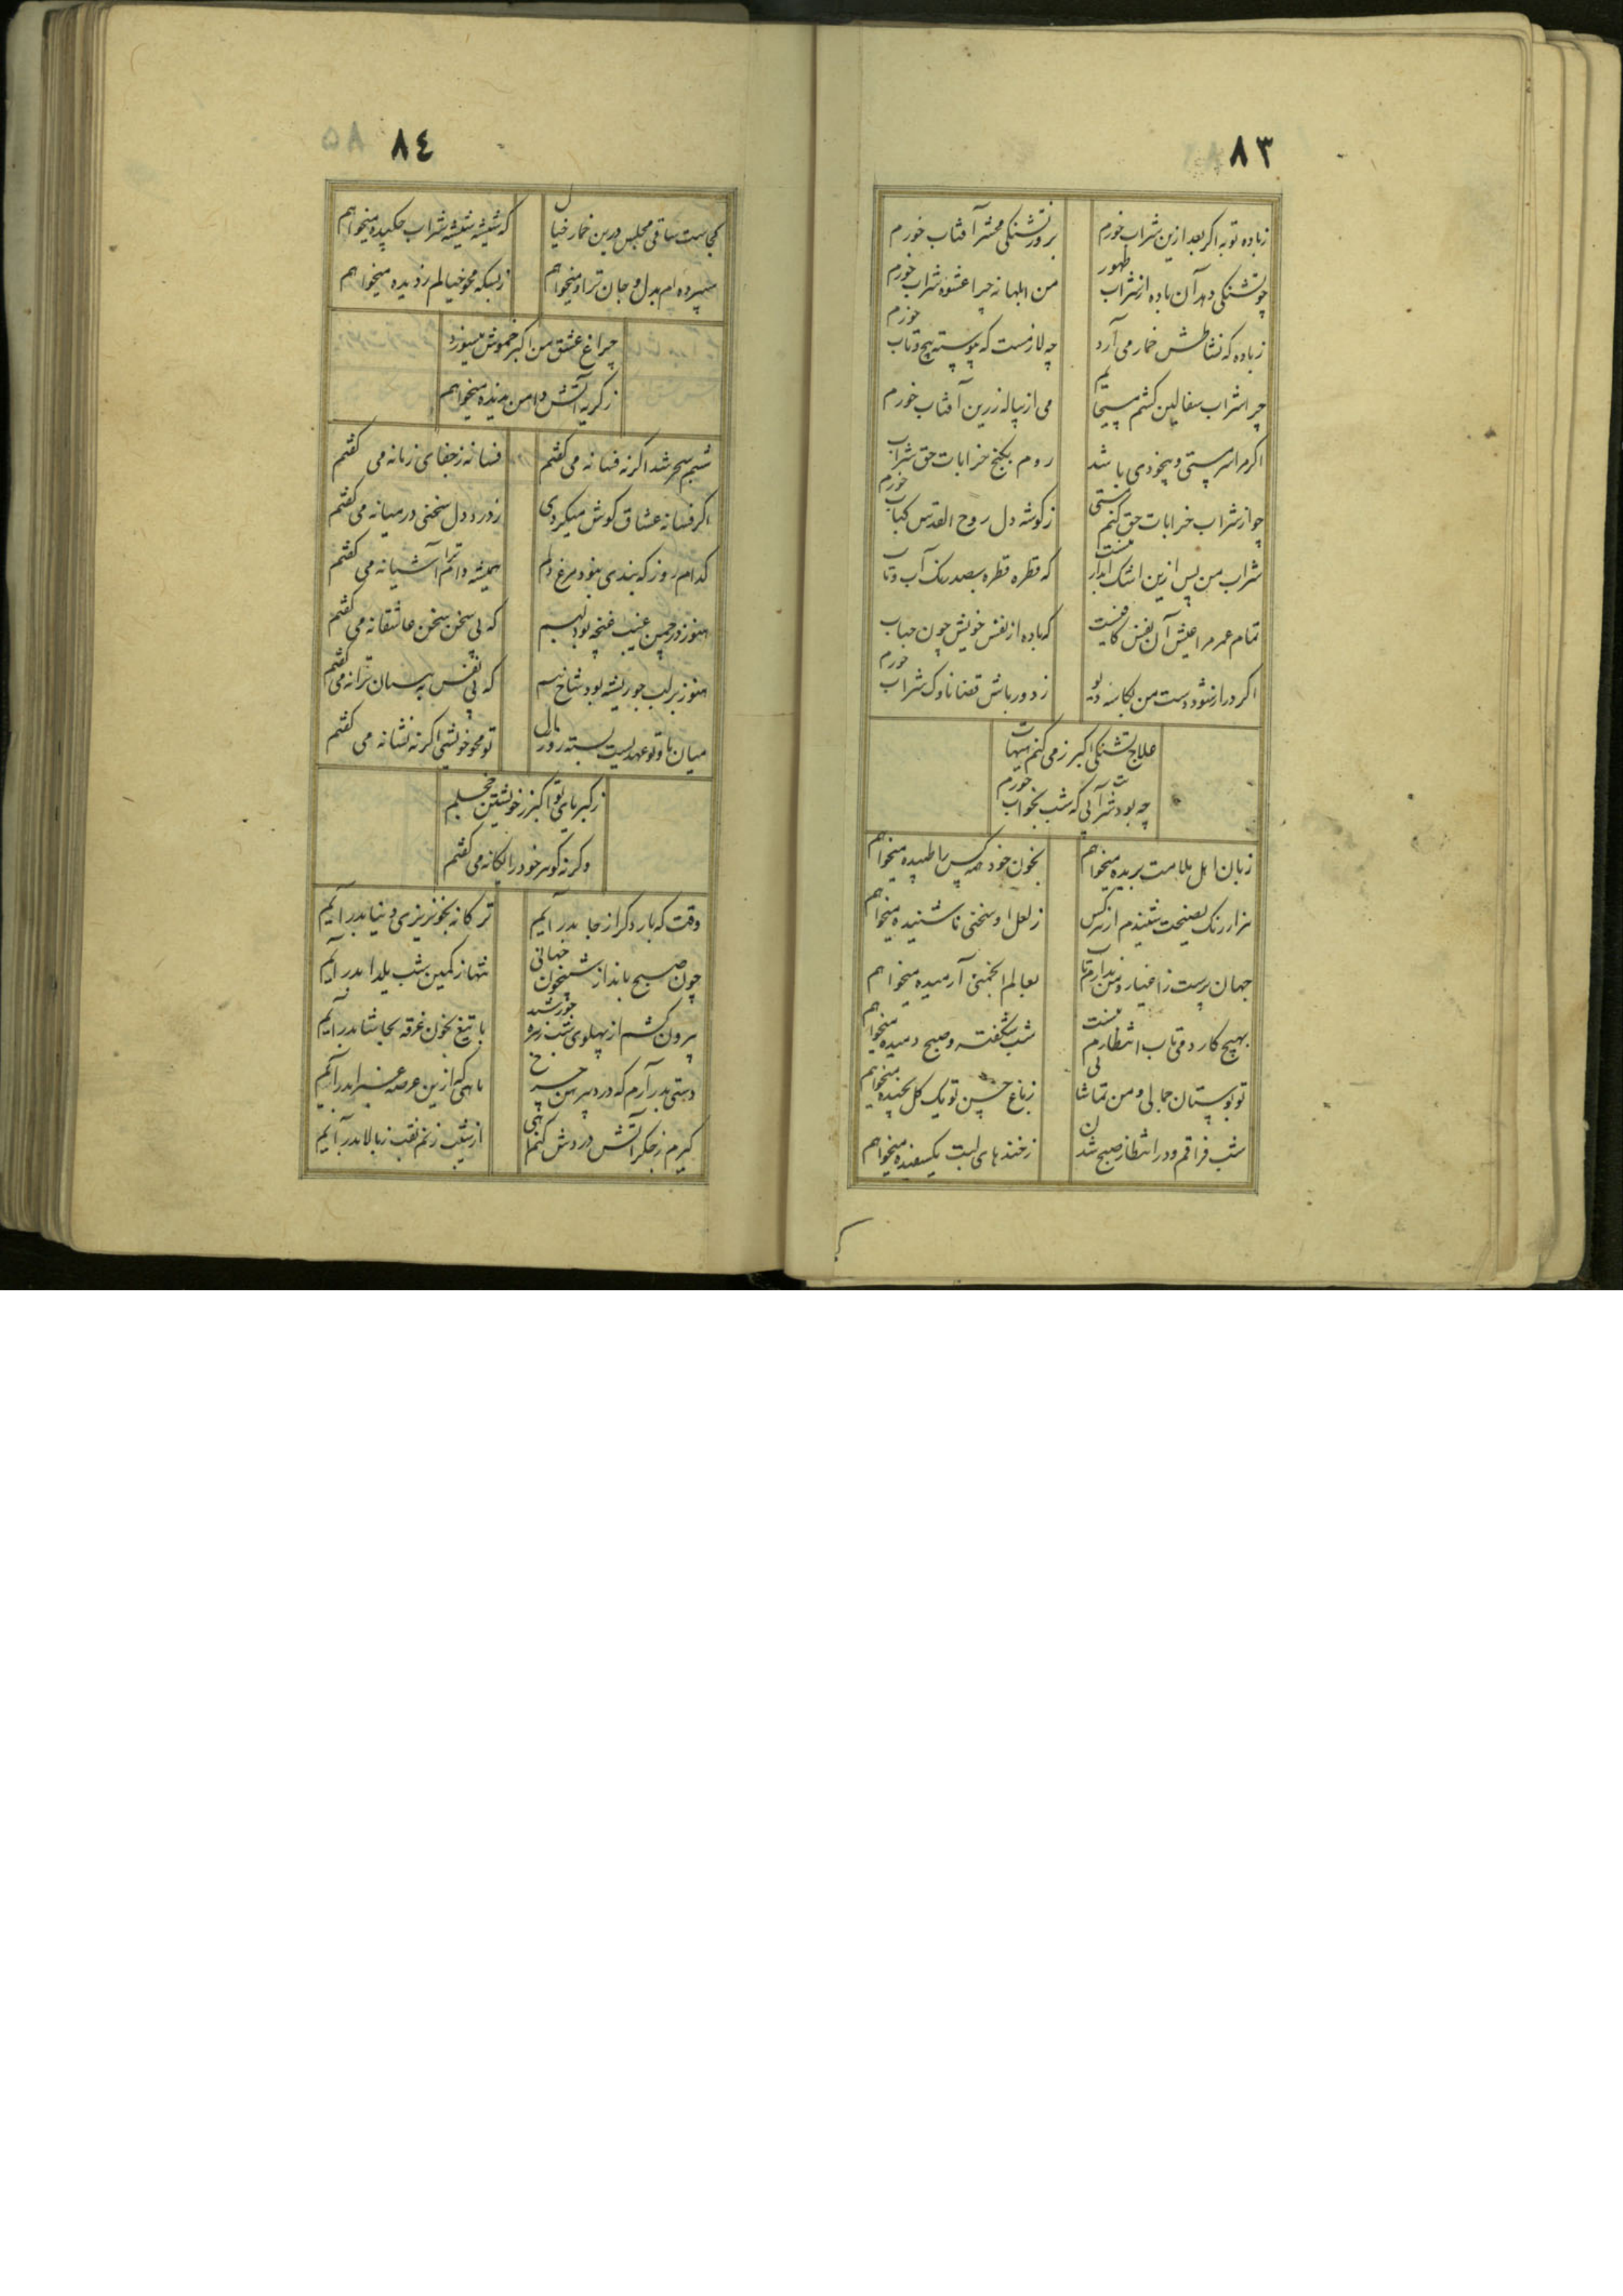 ٨٣
زباده توبه اگر بعد ازین شراب خورم
بروز تشنگی محشر آفتاب خورم
چو تشنگی دهد آن باده از شراب طهور
من ابلهانه چرا عشوه شراب خورم
زباده که نشاطش خمار می آرد
چه لازمست که پیوسته پیچ وتاب خورم
چرا شراب سفالین کشم
می از پیاله زرین آفتاب خورم
اکر مرا سر مستی و بیخودی باشد
روم بکنج خرابات حق شراب خورم
چو از شراب خرابات حق کنم مستی
زکوشه دل روح القدس کباب
شراب من پس ازین اشک
که قطره قطره بصد رنک آب وتاب
تمام عمر مرا عیش آن نفس کافیست
که باده از نفس خویش چون حباب خورم
اکر دراز شود دست من بکاسه
ز دور باش قضا ناوک شراب
علاج تشنگی اکبر زمی کنم هیهات
چه بود شرابی که شب بخواب خورم
زبان اهل ملامت بریده میخواهم
بخون خود همه کس را طپیده میخواهم
هزار رنک نصیحت شنیدم از هرکس
زلعل او سخنی ناشنیده میخواهم
جهان پرست زاغیار و من ندارم تاب
بعالم انجمنی آرمیده میخواهم
بهیچ کار دمی تاب انتظارم نیست
شب شکفته و صبح دمیده میخواهم
تو بوستان جمالی و من تماشایی
زباغ حسن تو یک کل نچیده میخواهم
شب فراقم و در انتظار صبح شدن
زخندهای لبت یک سفیده میخواهم
٨٤
کجاست ساقی مجلس درین خمار خیال
که شیشه شیشه شراب چکیده میخواهم
سپرده ام بدل و جان ترا و میخواهم
زبسکه محو خیالم زدیده میخواهم
چراغ عشق من اکبر خموش میسوزد
زکریه آتش دامن میخواهم
شبم سحر شد اکر نه فسانه می کفتم
فسانه زجفای زمانه می کفتم
اکر فسانه عشاق کوش میکردی
زدرد دل سخنی در میانه می کفتم
کدام روز که بندی نبود مرغ دلم
همیشه دام ترا آشیانه می کفتم
هنوز در چمن غیب غنچه بود لبم
که بی سخن سخن عاشقانه می کفتم
هنوز برلب جو ریشه بود شاخ
که بی نفس ترانه می کفتم
میان ما و تو عهدیست بسته
تو محو خویشی اکر نه نشانه می کفتم
زکبریای تو اکبر زخویشتن خجلم
وکرنه کوهر خود را یکانه می کفتم
وقت که بار دکر از جا بدر آیم
ترکانه بخونریزی دنیا بدر آیم
چون صبح بانداز شبیخون جهانی
تنها زکمین شب یلدا بدر آیم
بیرون کشم از پهلوی شب خورشید
با تیغ بخون غرقه بحاشا بدر آیم
دستی بدر آرم که درد پیرهن چرخ
ماهی که ازین عرصه بدر آیم
کیرم زجکر آتش و دردش کنم
از شیب زنم نقب زبالا بدر آیم